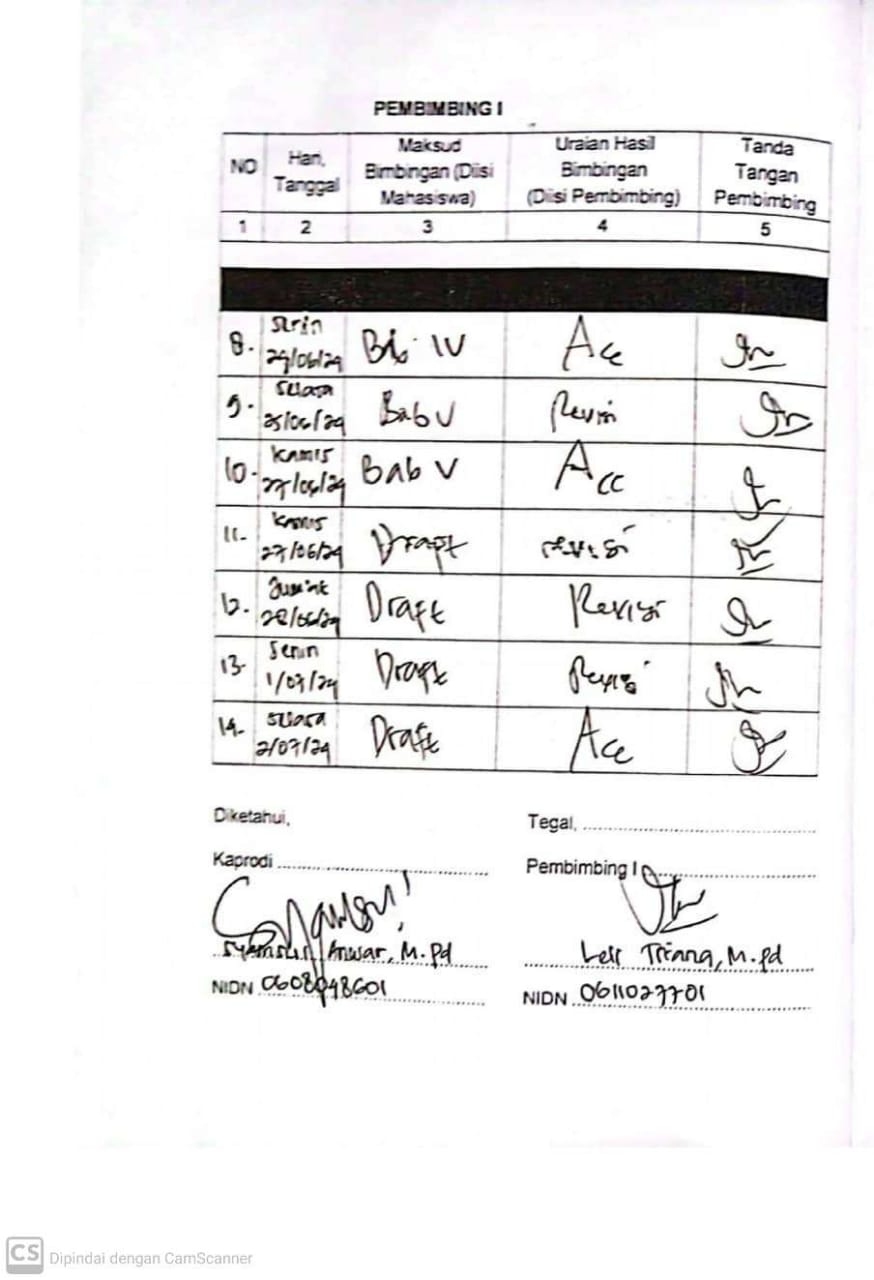 PEMBIMBING I
NO Hari, Tanggal Maksud Bimbingan (Diisi Mahasiswa) Uraian Hasil Bimbingan (Diisi Pembimbing) Tanda Tangan Pembimbing
1 2 3 4 5
8. 24/06/24 Bab IV Acc
9. Selasa 25/06/24 Bab V Revisi
10. Kamis 27/06/24 Bab V Acc
11. Kamis 27/06/24 Draft revisi
12. 28/06/24 Draft Revisi
13. Senin 1/07/24 Draft Revisi
14. Selasa 2/07/24 Draft Acc
Diketahui,
Tegal, ........................
Kaprodi ........................
Pembimbing I ........................
Anwar, M.Pd
Leli Triana, M.Pd
NIDN
NIDN 0611027701
CS Dipindai dengan CamScanner